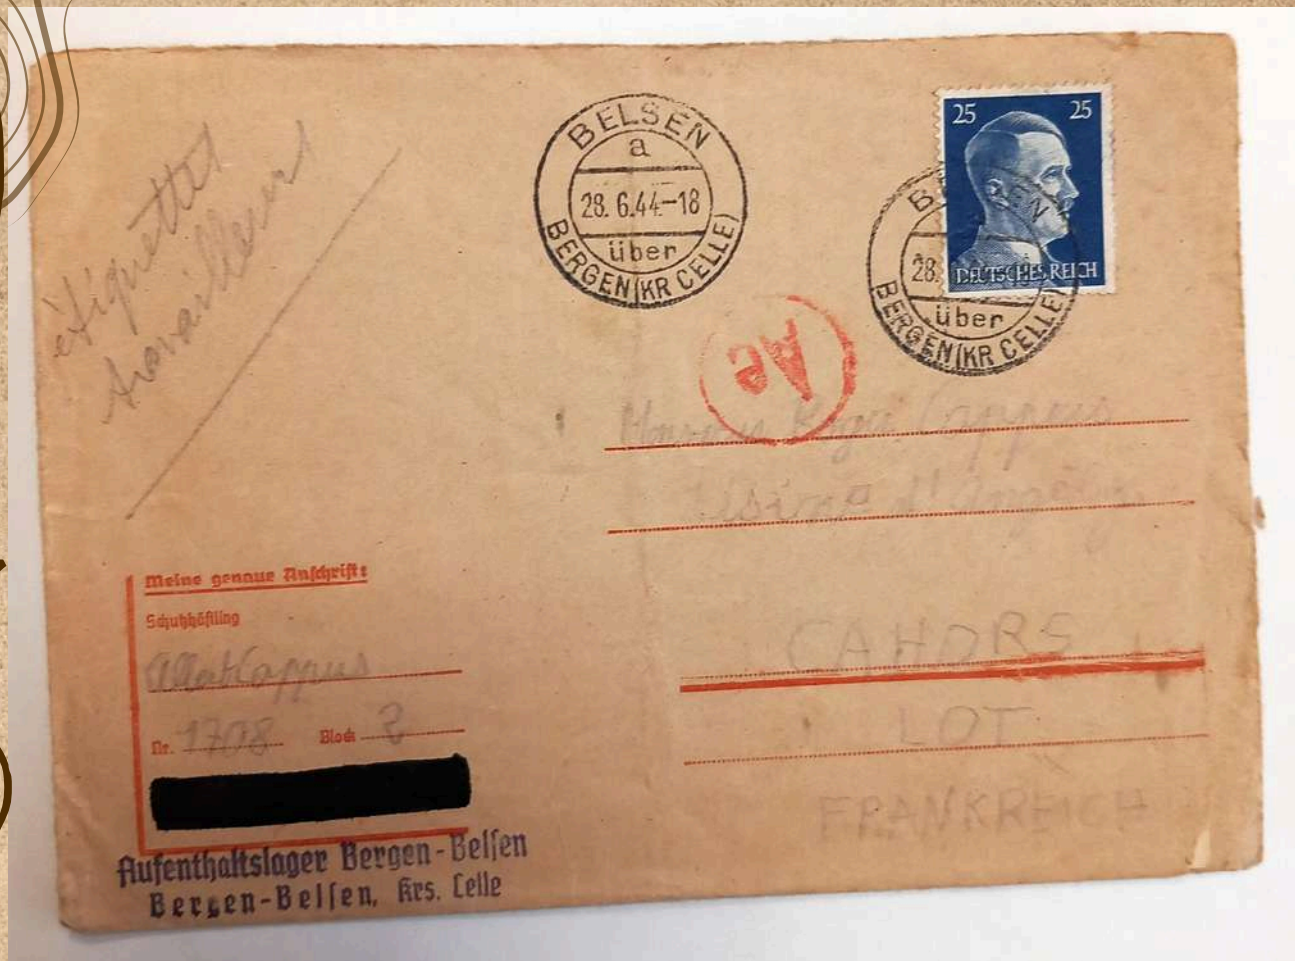 étiquettes
travailleur
BELSEN
a
28.6.44-18
über
BERGEN (KR CELLE)
25 25
DEUTSCHES REICH
BELSEN
28.
über
BERGEN (KR CELLE)
Ae
Monsieur Roger Cappus
Usine d'
CAHORS
LOT
FRANKREICH
Meine genaue Anschrift:
Schutzhäftling
Cappus
Nr. 1708 Block 3
Aufenthaltslager Bergen-Belsen
Bergen-Belsen, Krs. Celle